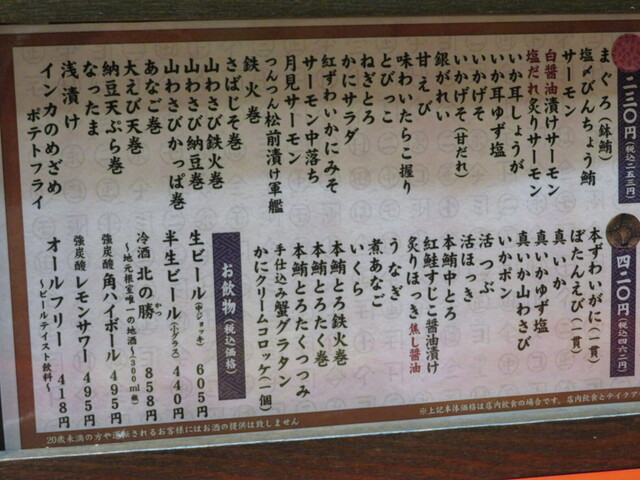 二三〇円(税込二五三円)
まぐろ(鉢鮪)
塩〆びんちょう鮪
サーモン
白醤油漬けサーモン
塩だれ炙りサーモン
いか耳しょうが
いか耳ゆず塩
いかげそ
いかげそ(甘だれ)
銀がれい
甘えび
味わいたらこ握り
とびっこ
ねぎとろ
かにサラダ
紅ずわいかにみそ
サーモン中落ち
月見サーモン
つんつん松前漬け軍艦
鉄火巻
さばじそ巻
山わさび鉄火巻
山わさび納豆巻
山わさびかっぱ巻
あなご巻
大えび天巻
納豆天ぷら巻
なったま
浅漬け
インカのめざめ
ポテトフライ
四二〇円(税込四六二円)
本ずわいがに(一貫)
ぼたんえび(一貫)
真いか
真いかゆず塩
真いか山わさび
いかポン
活つぶ
活ほっき
本鮪中とろ
紅鮭すじこ醤油漬け
炙りほっき焦し醤油
うなぎ
煮あなご
いくら
本鮪とろ鉄火巻
本鮪とろたく巻
本鮪とろたくつつみ
手仕込み蟹グラタン
かにクリームコロッケ(一個)
お飲物(税込価格)
生ビール(中ジョッキ) 605円
半生ビール(小グラス) 440円
冷酒 北の勝かつ 858円
~地元根室唯一の地酒~(300ml瓶)
強炭酸 角ハイボール 495円
強炭酸 レモンサワー 495円
オールフリー 418円
~ビールテイスト飲料~
※上記本体価格は店内飲食の場合です。店内飲食とテイクア
20歳未満の方や運転されるお客様にはお酒の提供は致しません